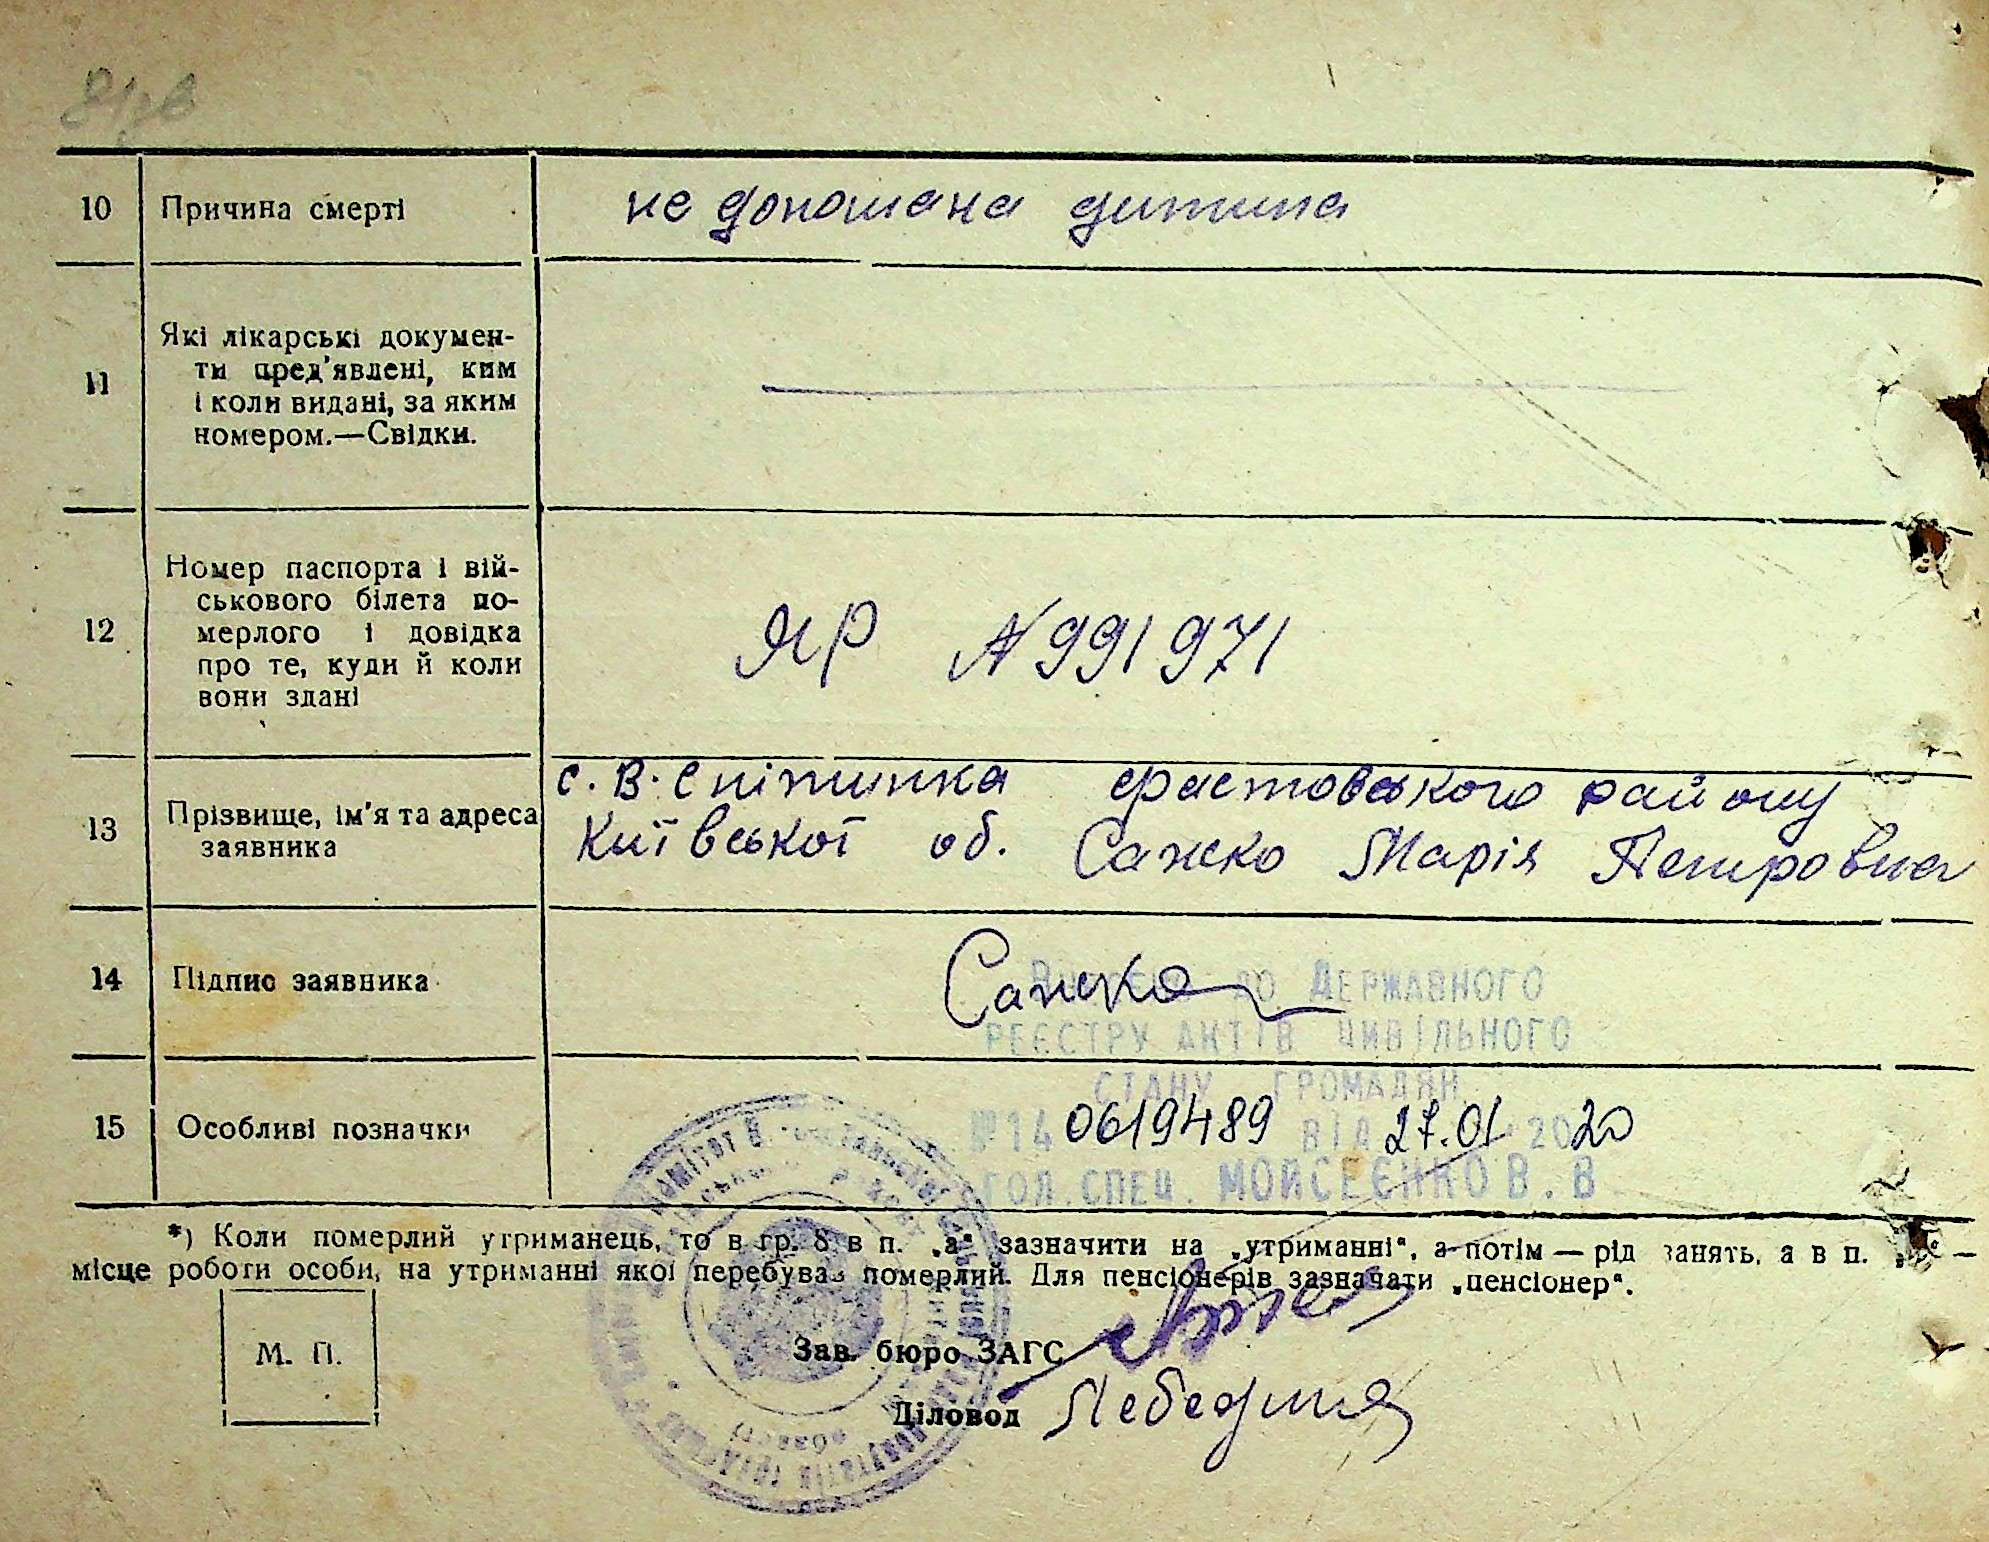 10 Причина смерті не доношана дитина
11 Які лікарські докумен-
ти пред'явлені, ким
і коли видані, за яким
номером.—Свідки.
12 Номер паспорта і вій-
ськового білета по-
мерлого і довідка
про те, куди й коли
вони здані
ЯР № 991971
13 Прізвище, ім'я та адреса
заявника
с. В. Снітинка Фастовського району
Київської об. Сажко Марія Петровна
14 Підпис заявника Сажко
ДО ДЕРЖАВНОГО
РЕЄСТРУ АКТІВ ЦИВІЛЬНОГО
СТАНУ ГРОМАДЯН
15 Особливі позначки
№ 14 0619489 ВІД 27.01 2020
ГОЛ. СПЕЦ. МОЙСЕЄНКО В. В.
*) Коли померлий утриманець, то в гр. 8 в п. „а“ зазначити на „утриманні“, а потім — рід занять, а в п. —
місце роботи особи, на утриманні якої перебував померлий. Для пенсіонерів зазначати „пенсіонер“.
М. П.
Зав. бюро ЗАГС
Діловод